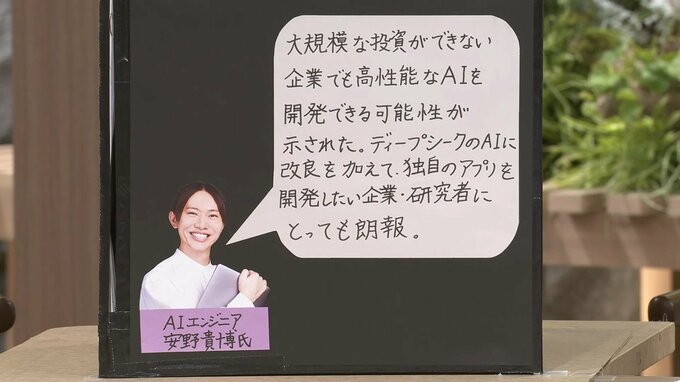 大規模な投資ができない
企業でも高性能なAIを
開発できる可能性が
示された。ディープシークのAIに
改良を加えて、独自のアプリを
開発したい企業・研究者に
とっても朗報。
AIエンジニア
安野貴博氏